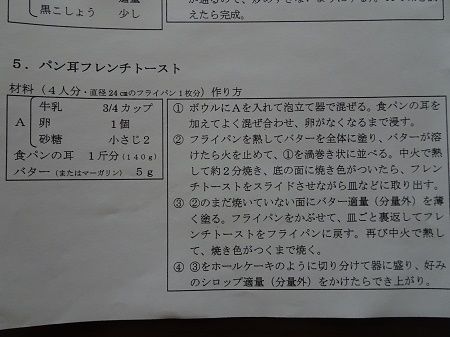 黒こしょう 少し
えたら完成。
5．パン耳フレンチトースト
材料（4人分・直径24㎝のフライパン1枚分）作り方
A
牛乳 3/4カップ
卵 1個
砂糖 小さじ2
食パンの耳 1斤分(140g)
バター(またはマーガリン) 5g
① ボウルにAを入れて泡立て器で混ぜる。食パンの耳を
加えてよく混ぜ合わせ、卵がなくなるまで浸す。
② フライパンを熱してバターを全体に塗り、バターが溶
けたら火を止めて、①を渦巻き状に並べる。中火で熱
して約2分焼き、底の面に焼き色がついたら、フレン
チトーストをスライドさせながら皿などに取り出す。
③ ②のまだ焼いていない面にバター適量（分量外）を薄
く塗る。フライパンをかぶせて、皿ごと裏返してフレ
ンチトーストをフライパンに戻す。再び中火で熱し
て、焼き色がつくまで焼く。
④ ③をホールケーキのように切り分けて器に盛り、好み
のシロップ適量（分量外）をかけたらでき上がり。